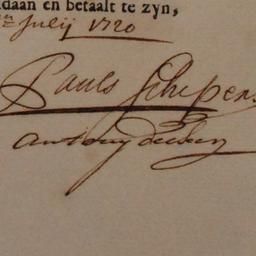 daan en betaalt te zyn,
en Julij 1720
Pauls Schepen
Antony